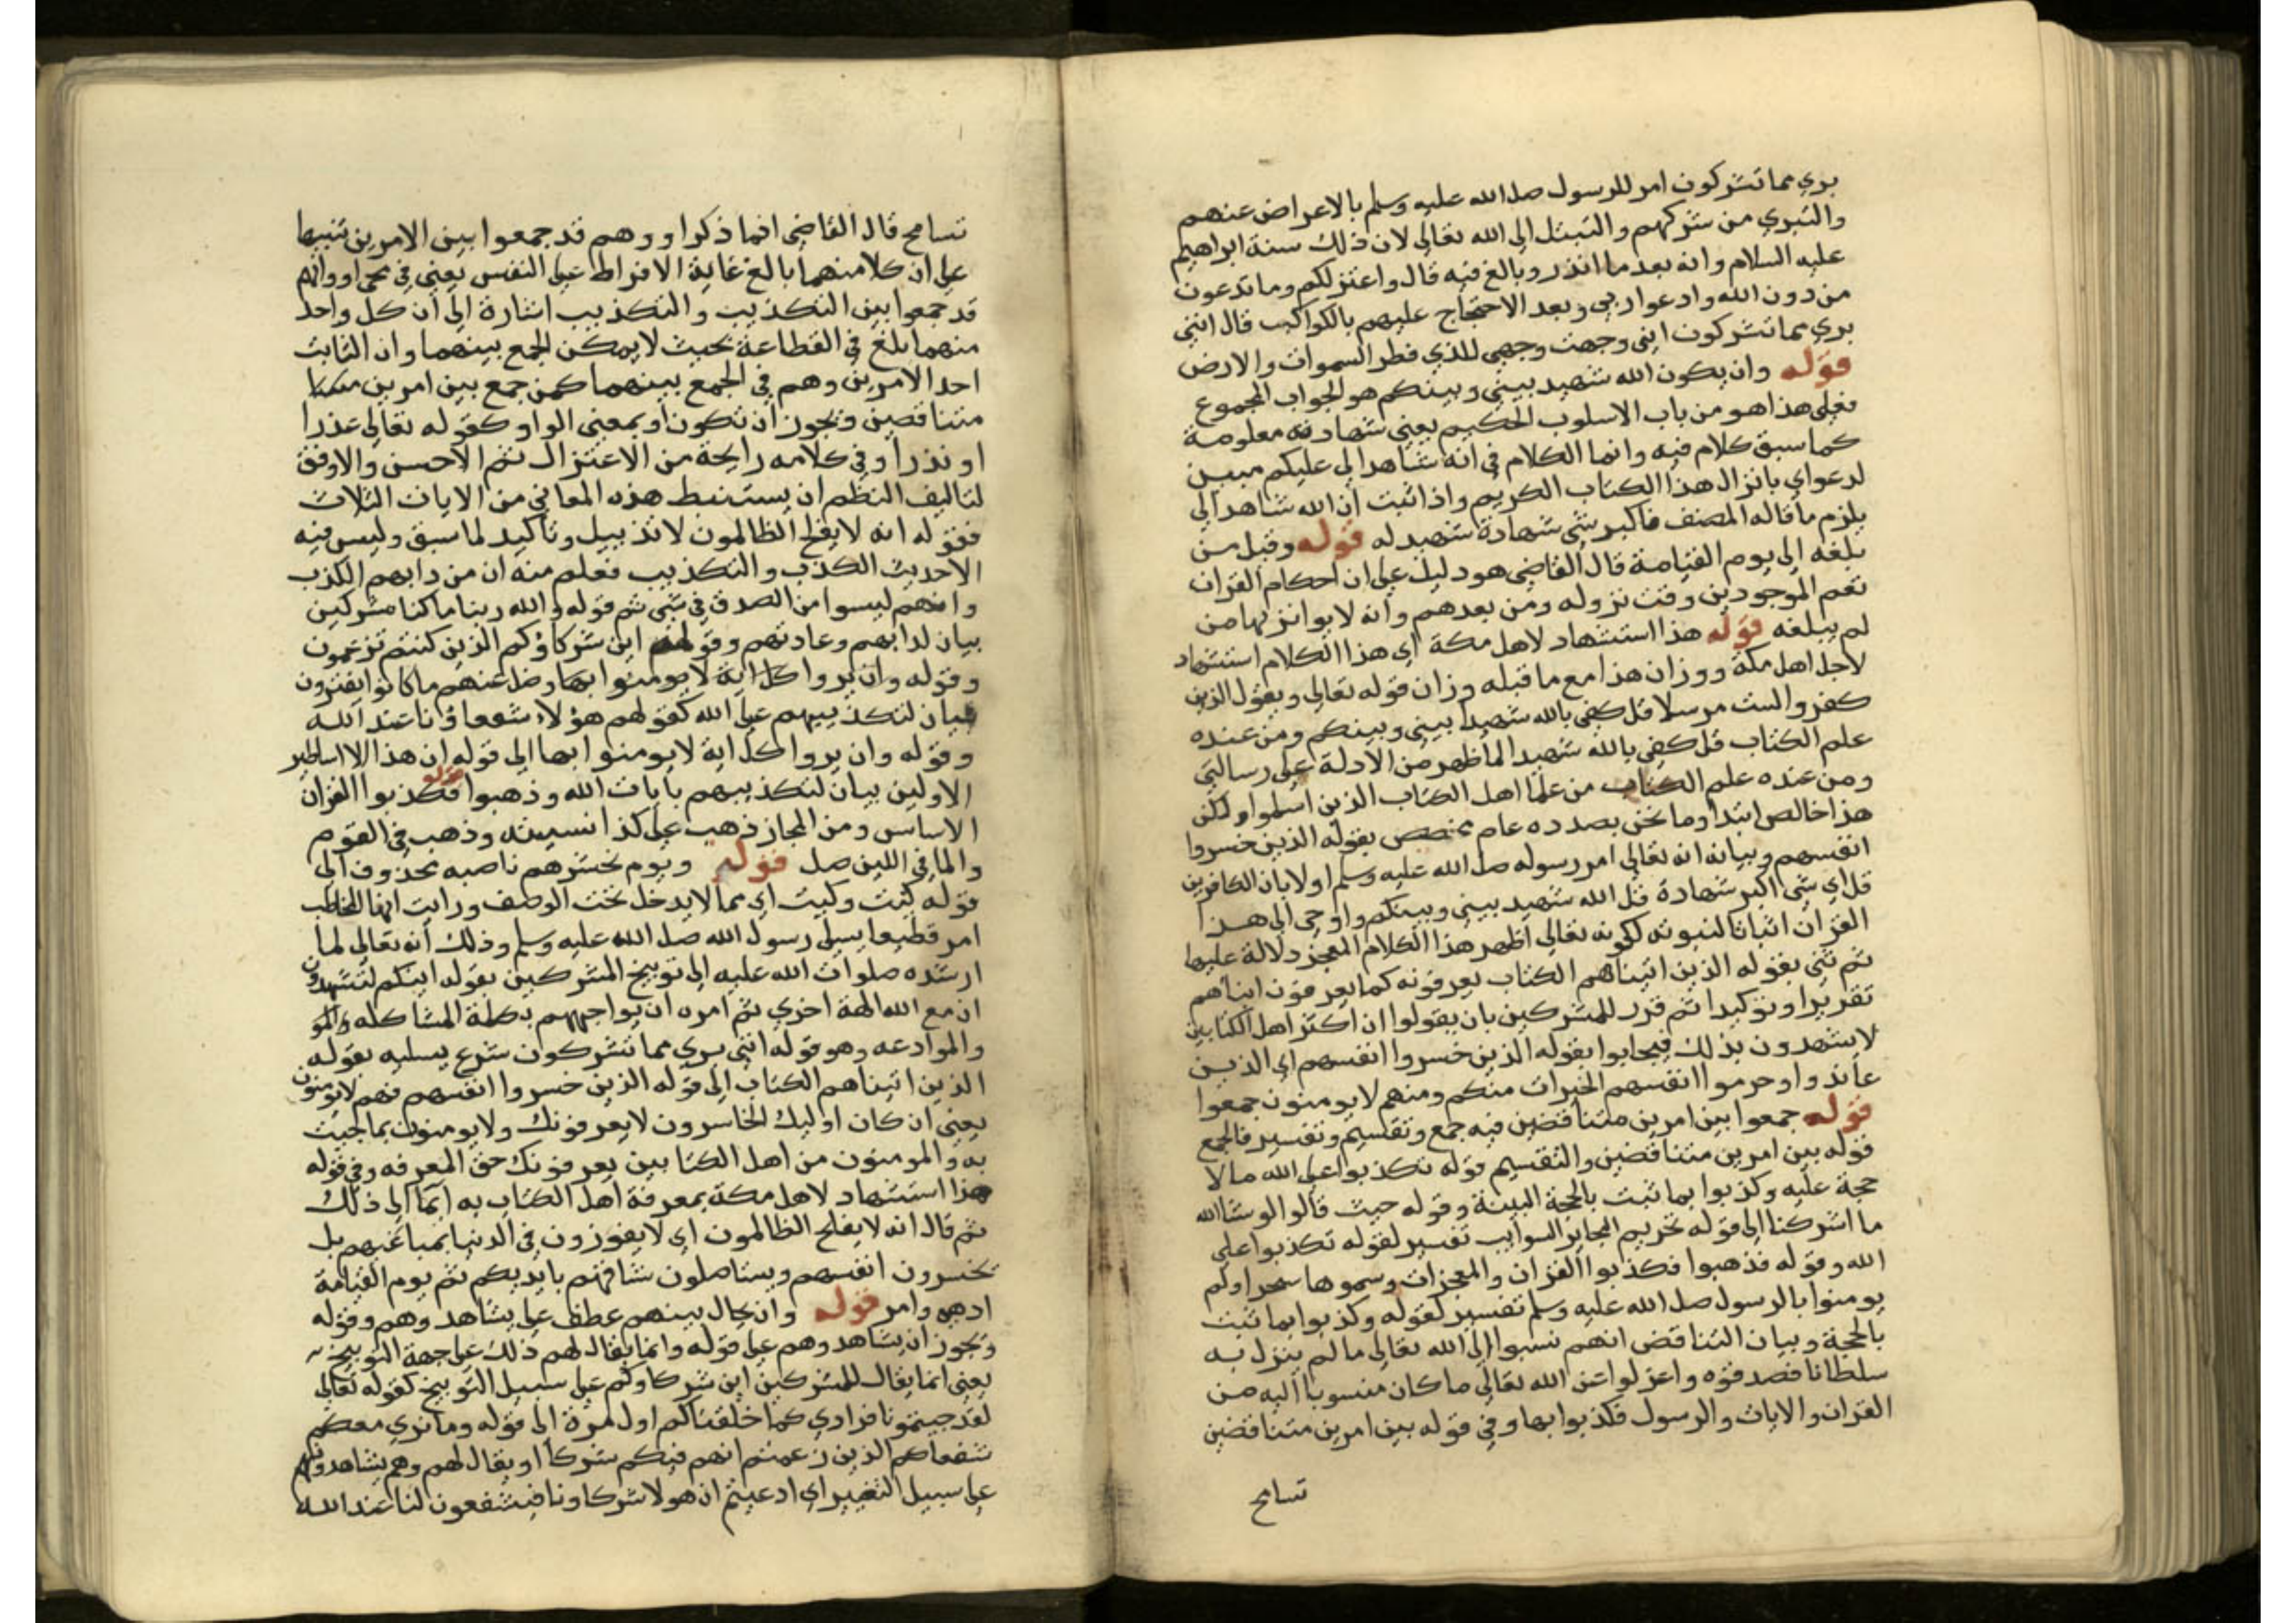 بري مما تشركون امر للرسول صلى الله عليه وسلم بالاعراض عنهم
والتبري من شركهم والتبتل الى الله تعالى لان ذلك سنة ابراهيم
عليه السلام وانه بعد ما انذر وبالغ فيه قال واعتزلكم وما تدعون
من دون الله وادعوا ربي وبعد الاحتجاج عليهم بالكواكب قال انني
بري مما تشركون اني وجهت وجهي للذي فطر السموات والارض
قوله وان يكون الله شهيد بيني وبينكم هو الجواب المجموع
فعلى هذا هو من باب الاسلوب الحكيم يعني شهادته معلومة
كما سبق كلام فيه وانما الكلام في انه شاهد لي عليكم مبين
لدعواي بانزال هذا الكتاب الكريم واذا ثبت ان الله شاهد الي
يلزم ما قاله المصنف فاكبر شي شهادة شهيد له قوله وقيل من
بلغه الى يوم القيامة قال القاضي هو دليل على ان احكام القران
تعم الموجودين وقت نزوله ومن بعدهم وانه لا يواخذ بها من
لم يبلغه قوله هذا استشهاد لاهل مكة اي هذا الكلام استشهاد
لاجل اهل مكة ووزان هذا مع ما قبله وزان قوله تعالى ويقول الذين
كفروا لست مرسلا قل كفى بالله شهيدا بيني وبينكم ومن عنده
علم الكتاب قل كفى بالله شهيدا لما ظهر من الادلة على رسالتي
ومن عنده علم الكتاب من علما اهل الكتاب الذين اسلموا ولكن
هذا خالص ابتدا وما نحن بصدده عام مخصص بقوله الذين خسروا
انفسهم وبيانه انه تعالى امر رسوله صلى الله عليه وسلم اولا بان الكافرين
قل اي شي اكبر شهادة قل الله شهيد بيني وبينكم واوحي الي هذا
القران اثباتا لنبوته لكونه تعالى اظهر هذا الكلام المعجز دلالة عليها
ثم ثنى بقوله الذين اتيناهم الكتاب يعرفونه كما يعرفون ابناهم
تقريرا وتوكيدا ثم قرر للمشركين بان يقولوا ان اكثر اهل الكتابين
لا يشهدون بذلك فيجابوا بقوله الذين خسروا انفسهم اي الذين
عاندوا وحرموا انفسهم الخيرات منكم ومنهم لا يومنون جمعوا
قوله جمعوا بين امرين متناقضين فيه جمع وتقسيم وتفسير فالجمع
قوله بين امرين متناقضين والتقسيم قوله تكذبوا على الله ما لا
حجة عليه وكذبوا بما ثبت بالحجة البينة وقوله حيث قالوا لو شا الله
ما اشركنا الى قوله تحريم البحاير السوايب تفسير لقوله تكذبوا على
الله وقوله فذهبوا فكذبوا القران والمعجزات وسموها سحرا ولم
يومنوا بالرسول صلى الله عليه وسلم تفسير لقوله وكذبوا بما ثبت
بالحجة وبيان التناقض انهم نسبوا الى الله تعالى ما لم ينزل به
سلطانا فصدقوه واعزلوا عن الله تعالى ما كان منسوبا اليه من
القران والايات والرسول فكذبوا بها وفي قوله بين امرين متناقضين
تسامح
تسامح قال القاضي انما ذكر او وهم قد جمعوا بين الامرين تنبيها
على ان كلا منهما بالغ غاية الافراط على النفس يعني في
قد جمعوا بين التكذيب والتكذيب اشارة الى ان كل واحد
منهما بلغ في الفظاعة بحيث لا يمكن الجمع بينهما وان الثابت
احد الامرين وهم في الجمع بينهما كمن جمع بين امرين
متناقضين ويجوز ان تكون او بمعنى الواو كقوله تعالى عذرا
او نذرا وفي كلامه رايحة من الاعتزال ثم الاحسن والاوفق
لتاليف النظم ان يستنبط هذه المعاني من الايات الثلاث
فقوله انه لا يفلح الظالمون لا تذييل وتاكيد لما سبق وليس فيه
الا حديث الكذب والتكذيب فعلم منه ان من دابهم الكذب
وانهم ليسوا من الصدق في شي ثم قوله والله ربنا ما كنا مشركين
بيان لدابهم وعادتهم وقولهم اين شركاؤكم الذين كنتم تزعمون
وقوله وان يروا كل اية لا يومنوا بها وضل عنهم ما كانوا يفترون
بيان لتكذيبهم على الله كقولهم هؤلاء شفعاؤنا عند الله
وقوله وان يروا كل اية لا يومنوا بها الى قوله ان هذا الا اساطير
الاولين بيان لتكذيبهم بايات الله وذهبوا فكذبوا القران
الاساس ومن المجاز ذهب على كذا نسيته وذهب في القوم
والما في اللبن ضل قوله ويوم نحشرهم ناصبه محذوف الى
قوله كيت وكيت اي مما لا يدخل تحت الوصف ورايت ايها المخاطب
امر قطيعا يسلي رسول الله صلى الله عليه وسلم وذلك انه تعالى لما
ارشده صلوات الله عليه الى توبيخ المشركين بقوله ائنكم لتشهدون
ان مع الله الهة اخرى ثم امره ان يواجههم بكلمة المشاكله
والموادعه وهو قوله انني بري مما تشركون شرع يسليه بقوله
الذين اتيناهم الكتاب الى قوله الذين خسروا انفسهم فهم لا يومنون
يعني ان كان اوليك الخاسرون لا يعرفونك ولا يومنون بما جيت
به والمومنون من اهل الكتابين يعرفونك حق المعرفه وفي قوله
هذا استشهاد لاهل مكة بمعرفة اهل الكتاب به ايما الى ذلك
ثم قال انه لا يفلح الظالمون اي لا يفوزون في الدنيا بمباغيهم بل
يخسرون انفسهم ويستاصلون شافتهم بايديكم ثم يوم القيامة
ادهى وامر قوله وان يحال بينهم عطف على يشاهدوهم وقوله
ويجوز ان يشاهدوهم على قوله وانما يقال لهم ذلك على جهة التوبيخ
يعني انما يقال للمشركين اين شركاوكم على سبيل التوبيخ كقوله تعالى
لقد جيتمونا فرادى كما خلقناكم اول مرة الى قوله وما نرى معكم
شفعاكم الذين زعمتم انهم فيكم شركا او يقال لهم وهم يشاهدونهم
على سبيل التعيير اي ادعيتم ان هولا شركاونا فيشفعون لنا عند الله